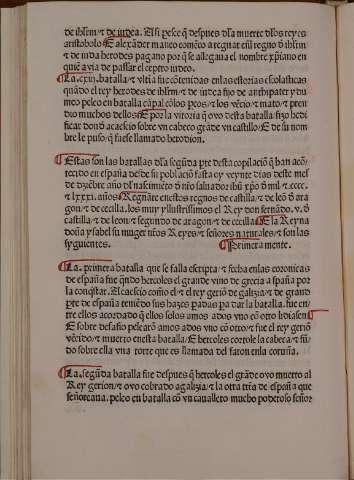 de ihrlm ⁊ de iudea. Al si peso q̃ despues dsla muerte dlos reyes
aristobolo E alexãder maneo comẽco a regnar enl regno d̃ ihrlm
⁊ de iuda herodes pagano por q̃ se allegaua el nombre xp̃iano en
quiẽ auia de passar el ceptro iudeo.
La .cxiij. batalla ⁊ vltĩa fue cõtenidas enlas estorias escolasticas
quãdo el rey herodes de ihrlm ⁊ de iudea fijo de anthipater y du
meo peleo en batalla cãpal cõlos p̃eos ⁊ los vẽcio ⁊ mato ⁊ pren
dio muchos dellos E por la vitoria q̃ ovo desta batalla fizo hedi
ficar don̄d acaescio sobre vn cabeco grãde vn castillo E de su nom
bre le puso q̃ fuesse llamado herodion.
Estas son las batallas dsla segũda pte desta copilaciõ q̃ han acõ
tecido en españa desde su poblaciõ fasta oy veynte dias deste mes
de dezẽbre año dsl nascimiẽto d̃ nr̃o saluador ihũ xp̃o d̃ mil ⁊ .cccc.
⁊ lxxxi. años Regnãte enestos regnos de castilla ⁊ de leõ d̃ ara
gon ⁊ de cecilla. los muy yllustrissimos el Rey don fernãdo .v. d̃
castilla ⁊ de leon ⁊ segundo de aragon ⁊ de cecilla E la Reyna
doña ysabel su muger nr̃os Reyes ⁊ señores naturales ⁊ son las
syguientes. Primera mente.
La. primera batalla que se falla escripta ⁊ fecha enlas coronicas
de españa fue qñdo hercoles el grande vino de grecia a españa por
la conq̃star. Alcaescio com̄o el ⁊ el rey geriõ de galizia ⁊ de grand
pte de españa teniẽdo sus hazes padas pa dar la batalla. fue en
tre ellos acordado q̃ ellos solos amos ados vno cõ otro lidiasen
E sobre desafio pelearõ amos ados vno cõ otro ⁊ fue el rey geriõ
vẽcido ⁊ muerto enesta batalla E hercoles cortole la cabeca ⁊ fũ
do sobre ella vna torre que es llamada del faron enla coruña.
La. segũda batalla fue despues q̃ hercoles el grãde ovo muerto al
Rey gerion ⁊ ovo cobrado agalizia ⁊ la otra tr̃ra de españa que
señoreaua. peleo en batalla cõ vn cauallero mucho poderoso señor